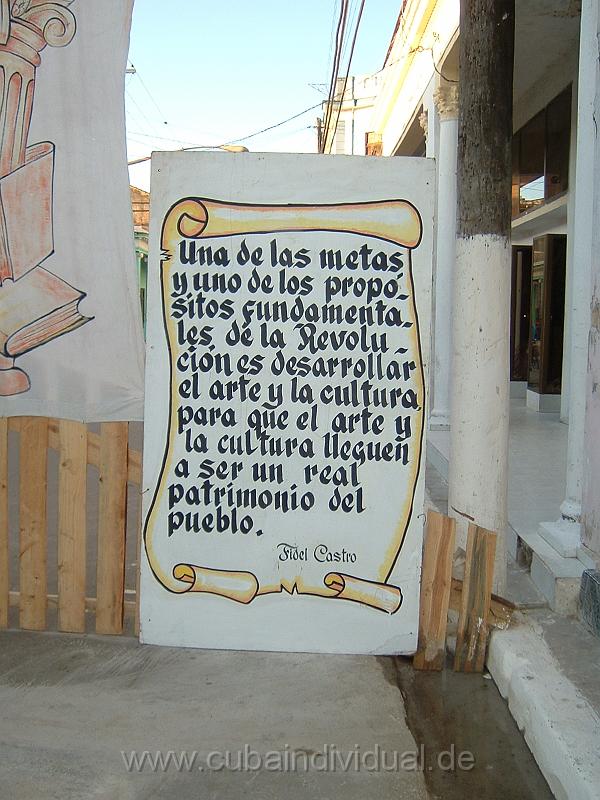 Una de las metas
y uno de los propó-
sitos fundamenta-
les, de la Revolu-
ción es desarrollar
el arte y la cultura
para que el arte y
la cultura lleguen
a ser un real
patrimonio del
pueblo.
Fidel Castro
www.cubaindividual.de